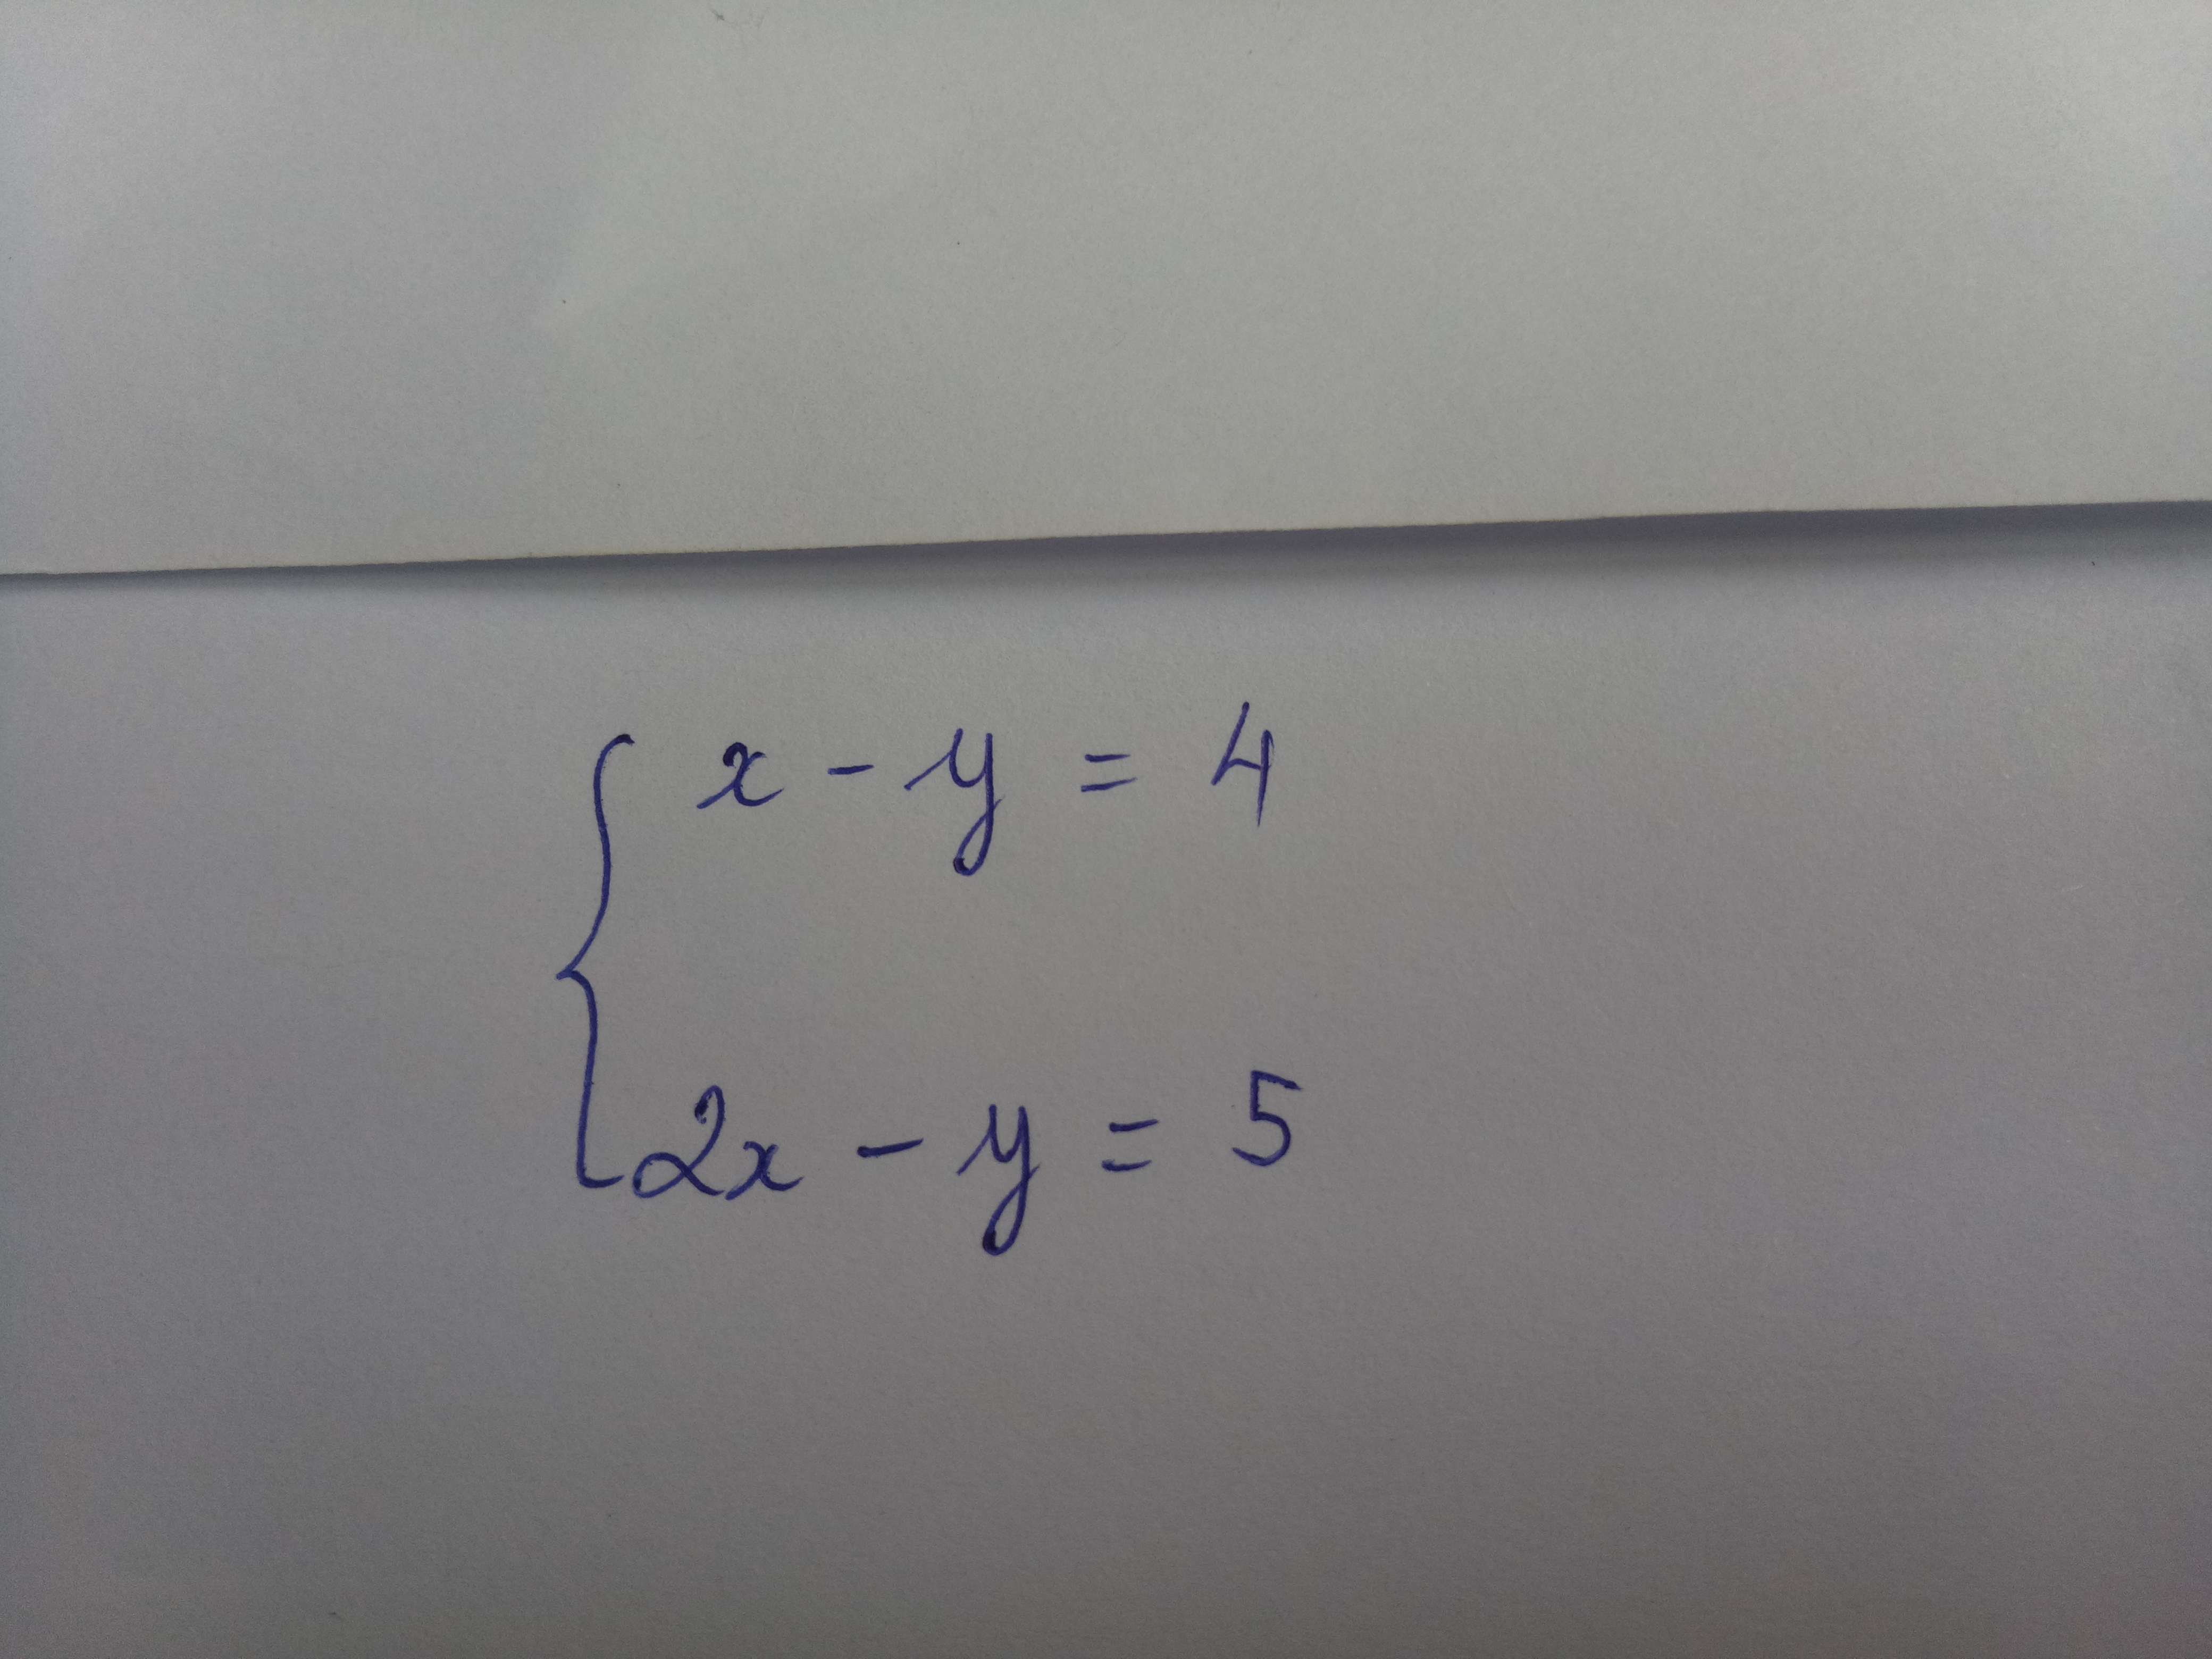 x - y = 4
2x - y = 5